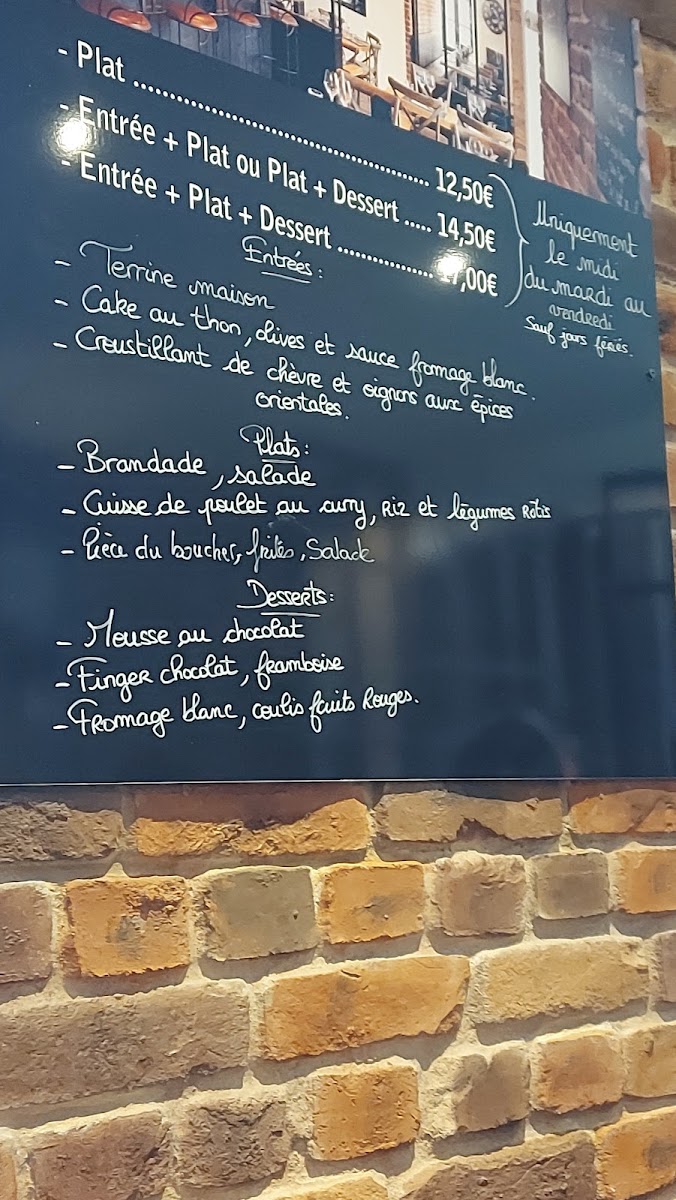 - Plat ........................................ 12,50€
- Entrée + Plat ou Plat + Dessert ..... 14,50€
- Entrée + Plat + Dessert ................ 17,00€
Uniquement
le midi
du mardi au
vendredi
Sauf jours fériés.
Entrées :
- Terrine maison
- Cake au thon, olives et sauce fromage blanc.
- Croustillant de chèvre et oignons aux épices
orientales.
Plats :
- Brandade, salade
- Cuisse de poulet au curry, Riz et légumes Rôtis
- Pièce du boucher, frites, Salade
Desserts :
- Mousse au chocolat
- Finger chocolat, framboise
- Fromage blanc, coulis fruits Rouges.